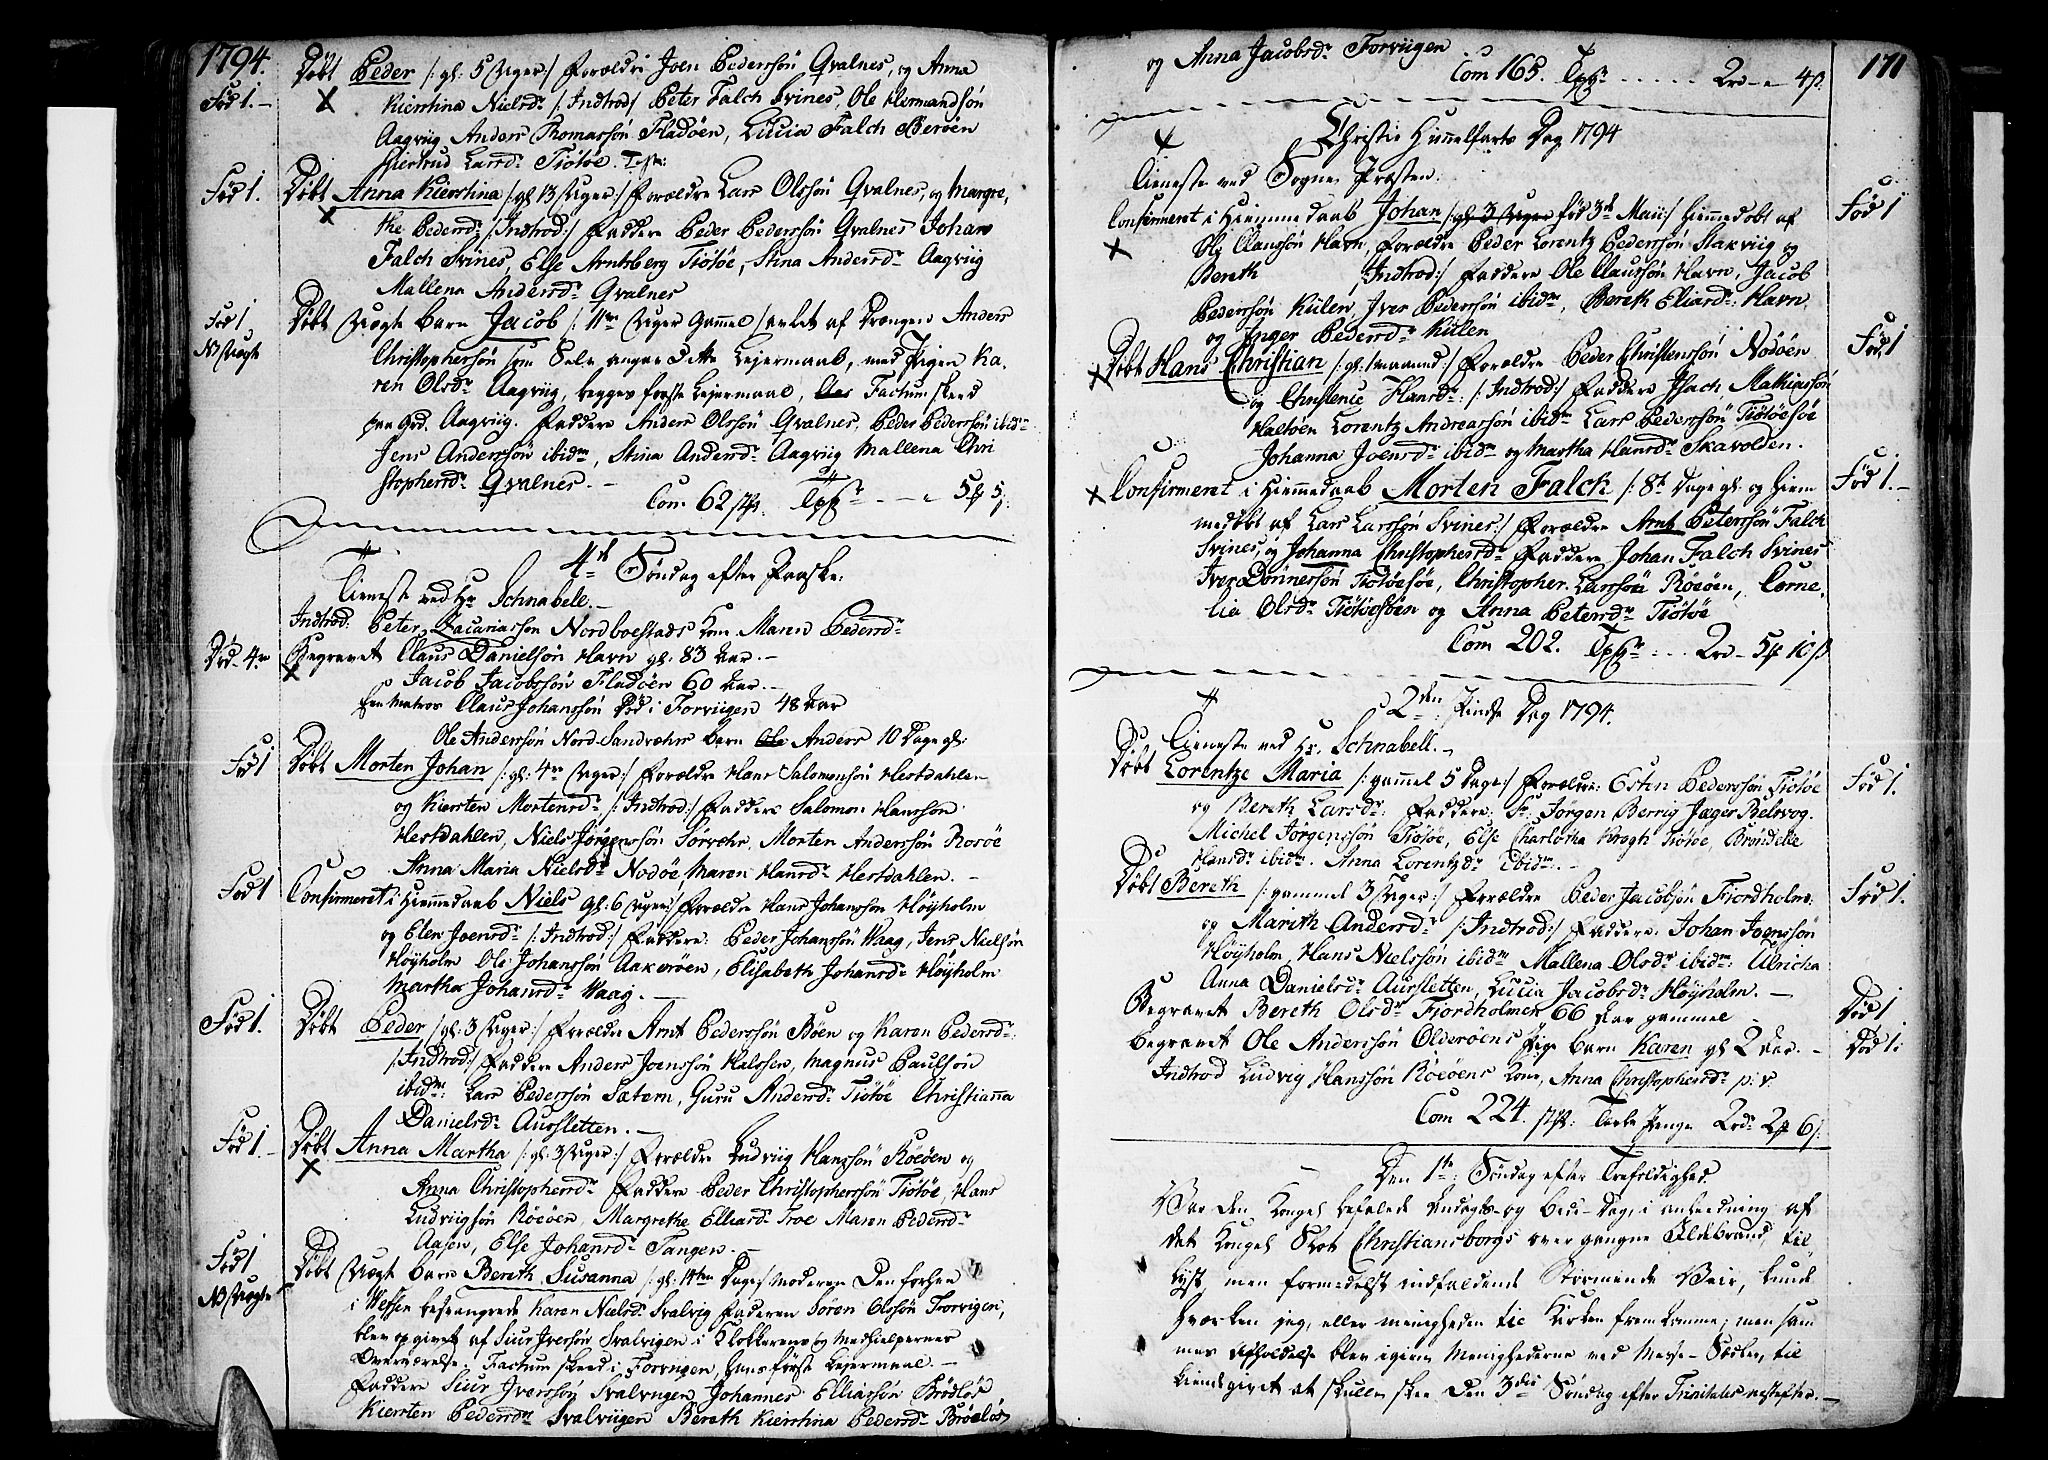 1794.
Døbt Peder /: gl: 5 Uger :/ Forældre Joen Pederssøn Qvalnes, og Anna
Fød 1. –
Kierstina Nielsdr /: Indtrod :/ Peter Falch Svines, Ole Hermandsøn
Aagviig Anders Thomassøn Fladøen, Lucia Falch Berøen
Giertrud Larsdr Tiøtøe.
Fød 1. Døbt Anna Kierstina /: gl 13 Uger :/ Forældre Lars Olssøn Qvalnes, og Margre,
the Pedersdr /: Indtrod :/ Faddere Peder Pederssøn Qvalnes Johan
Falch Svines, Else Arntsberg Tiøtøe, Stina Andersdr Aagviig
Mallena Andersdr Qvalnes
Fød 1 Døbt Uægte barn Jacob /: 11ve Uger Gammel / avlet af Drængen Anders
N Uægte Christophersøn som Selv angav Dette Lejermaal, med Pigen Ka,
ren Olsdr Aagviig, begges første Lejermaal, Factum skeed
paa Grd. Aagviig. Faddere Anders Olssøn Qvalnes, Peder Pederssøn ibidm
Jens Anderssøn ibidm, Stina Andersdr Aagviig Mallena Chri
stophersdr Qvalnes. –
Com 62
4de Søndag efter Paaske:
Tieneste ved Hr Schnabell. –
Indtrod: Peter Zacariassøn Nordboestads Kone Maren Pedersdr
Død – 4re Begravet Claus Danielssøn Havn gl. 83 Aar. –
Jacob Jacobssøn Fladøen 60 Aar. –
Een Matros Claus Johanssøn Død i Forviigen 48 Aar
Ole Anderssøn Nord-Sandværs barn Ole Anders 10 Dage gl:
Fød 1 Døbt Morten Johan /: gl: 4re Uger :/ Forældre Hans Salomonsøn Hestdahlen
og Kiersten Mortensdr /: Indtrod :/ Faddere Salomon Hanssøn
Hestdahlen, Niels Jørgenssøn Sørvær, Morten Anderssøn Rosøe
Anna Maria Nielsdr Nodøe, Maren Hansdr Hestdahlen. –
Fød 1 Confirmeret i Hiemmedaab Niels gl: 6 Uger :/ Forældre Hans Johanssøn Høyholm
og Elen Joensdr /: Indtrod :/ Faddere: Peder Johanssøn Vaag, Jens Nielssøn
Høyholm Ole Johanssøn Aakerøen, Elisabeth Johansdr Høyholm
Martha Johansdr Vaag. –
Fød 1. Døbt Peder /: gl: 3 Uger :/ Forældre Arnt Pederssøn Bøen og Karen Pedersdr
/: Indtrod :/ Faddere Anders Joenssøn Halssen, Magnus Paulssøn
ibidm: Lars Pederssøn Sætern, Guru Andersdr Tiøtøe Christianna
Danielsdr Aursletten. –
Fød 1. – Døbt Anna Martha /: gl: 3 Uger :/ Forældre Ludviig Hanssøn Røeøen og
Anna Christophersdr Faddere Peder Christopherssøn Tiøtøe, Hans
Ludviigsøn Røeøen, Margrethe Elliasdr Troe Maren Pedersdr
Aasen, Else Johansdr Tangen. –
Fød 1 Døbt Uægte barn Bereth Susanna /: gl: 14ten Dage :/ Moderen Den forhen
N Uægte i Vefsen besvangrede Karen Nielsdr Svalvig Faderen Søren Olssøn Forvigen,
blev opgivet af Siur Iversøn Svalvigen i Klokkerens og Medhielpernes
Overværelse. Factum skeed i Forvigen, hans første Lejermaal. –
Faddere Siur Iverssøn Svalvigen Johannes Elliassøn Brødløs
Kiersten Pedersdr Svalviigen Bereth Kierstina Pedersdr Brøeløs
og Anna Jacobsdr Forviigen
Com 165. . . . . . 2rd – 4ß.
171
Christi Himmelfarts Dag 1794
Tieneste ved Sogne Præsten:
Confirmeret i Hiemmedaab Johan /: gl: 3 Uger fød 3de Maii :/ hiemmedøbt af
Fød 1
Ole Claussøn Havn, Forældre Peder Lorentz Pederssøn Slakviig og
Bereth /: Indtrod :/ Faddere Ole Claussøn Havn, Jacob
Pederssøn Kulen, Iver Pederssøn ibidm, Bereth Eliasdr Havn
og Inger Pedersdr Kulen
Døbt Hans Christian /: gl: 1 Maaned :/ Forældre Peder Christenssøn Nodøen
Fød 1
og Christence Hansdr: /: Indtrod :/ Faddere Isach Mathiassøn
Halsøen Lorentz Andreassøn ibidm Lars Pederssøn Tiøtøesøe
Johanna Joensdr ibidm og Martha Hansdr Skavolden.
Confirmeret i Hiemmedaab Morten Falch /: 8te Dage gl: og hiem
Fød 1. –
medøbt af Lars Larssøn Svines :/ Forældre Arnt Peterssøn Falch
Svines og Johanna Christophersdr Faddere Johan Falch Svines
Iver Dønnessøn Tiøtøesøe, Christopher Larssøn Røeøen, Corne,
lia Olsdr Tiøtøesøen og Anna Petersdr Tiøtøe
Com 202. . . . 2rd – 5 10ß
2den Pindse Dag 1794.
Tieneste ved Hr. Schnabell. –
Døbt Lorentze Maria /: gammel 5 Dage :/ Forældre: Esten Pederssøn Tiøtøe
Fød 1.
og Bereth Larsdr: Faddere: Sr: Jørgen Berrig Jæger Belsvog.
Michel Jørgenssøn Tiøtøe, Else Charlotha Krogh Tiøtøe, Brøndelie
Hansdr ibidm. Anna Lorentzdr Ibidm. –
Døbt Bereth /: gammel 3 Uger :/ Forældre Peder Jacobsøn Fiordholm:
Fød 1.
og Marith Andersdr /: Indtrod :/ Faddere: Johan Joenssøn
Høyholm, Hans Nielssøn ibidm Mallena Olsdr ibidm: Ulricha
Anna Danielsdr Aursletten, Lucia Jacobsdr Høyholm. –
Begravet Bereth Olsdr Fiordholmen 66 Aar gammel –
Død 1
begravet Ole Anderssøn Olderøens Pige barn Karen gl 2 Aar. –
Død 1:
Indtrod Ludvig Hanssøn Røeøens Kone, Anna Christophersdr p: v.
Com 224. Tavle Penge 2rdr 2 6ß.
Den 1te: Søndag efter Trefoldighed.
Var den Kongel befalede Andagts- og Bede-Dag, i anledning af
det Kongel Slot Christiansborgs overgangne Ildebrand, til
lyst, men formedelst indfaldende Stormende Veir, kunde
hverken jeg, eller menigheden til Kirken fremkomme; men sam
mes afholdelse blev igien Menighederne ved Messe-Seddel, til
kiendegivet at skulle skee den 3die Søndag efter Trinitatis nestefter. –